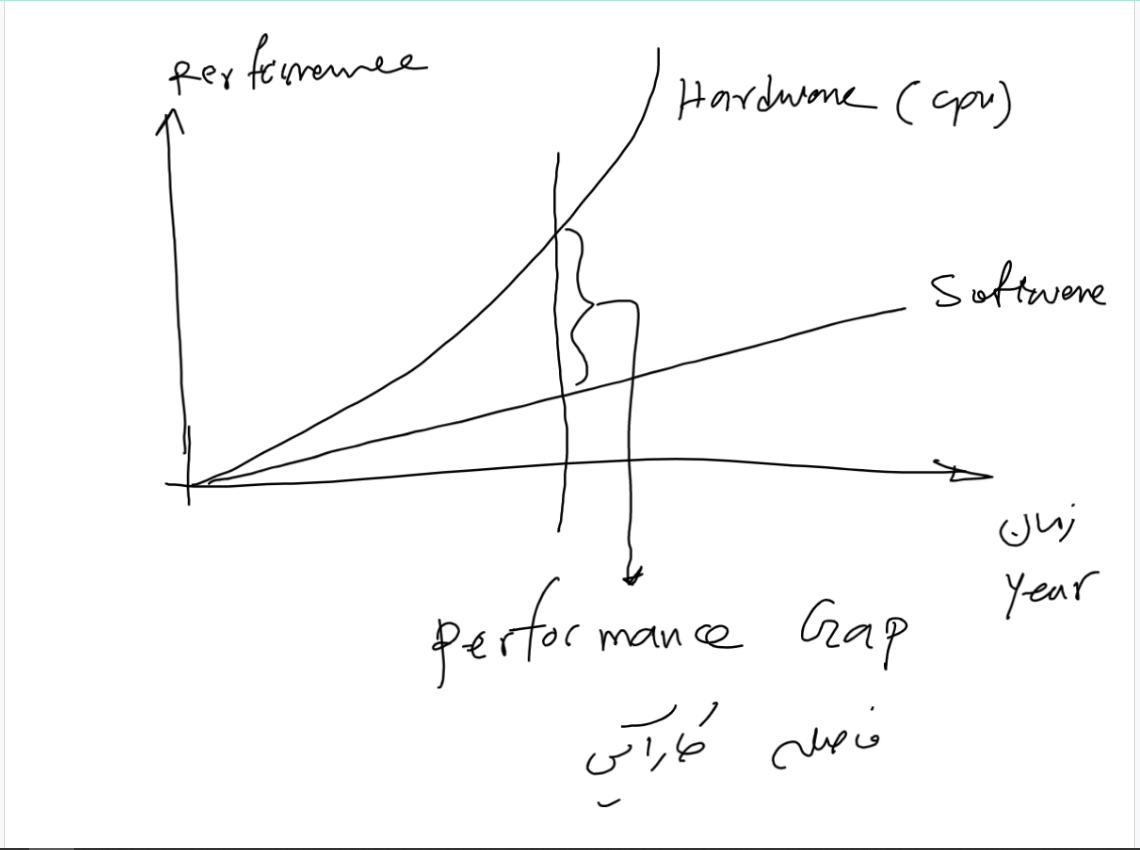 Performance
Hardware (cpu)
Software
زمان
Year
Performance Gap
فاصله کارآیی